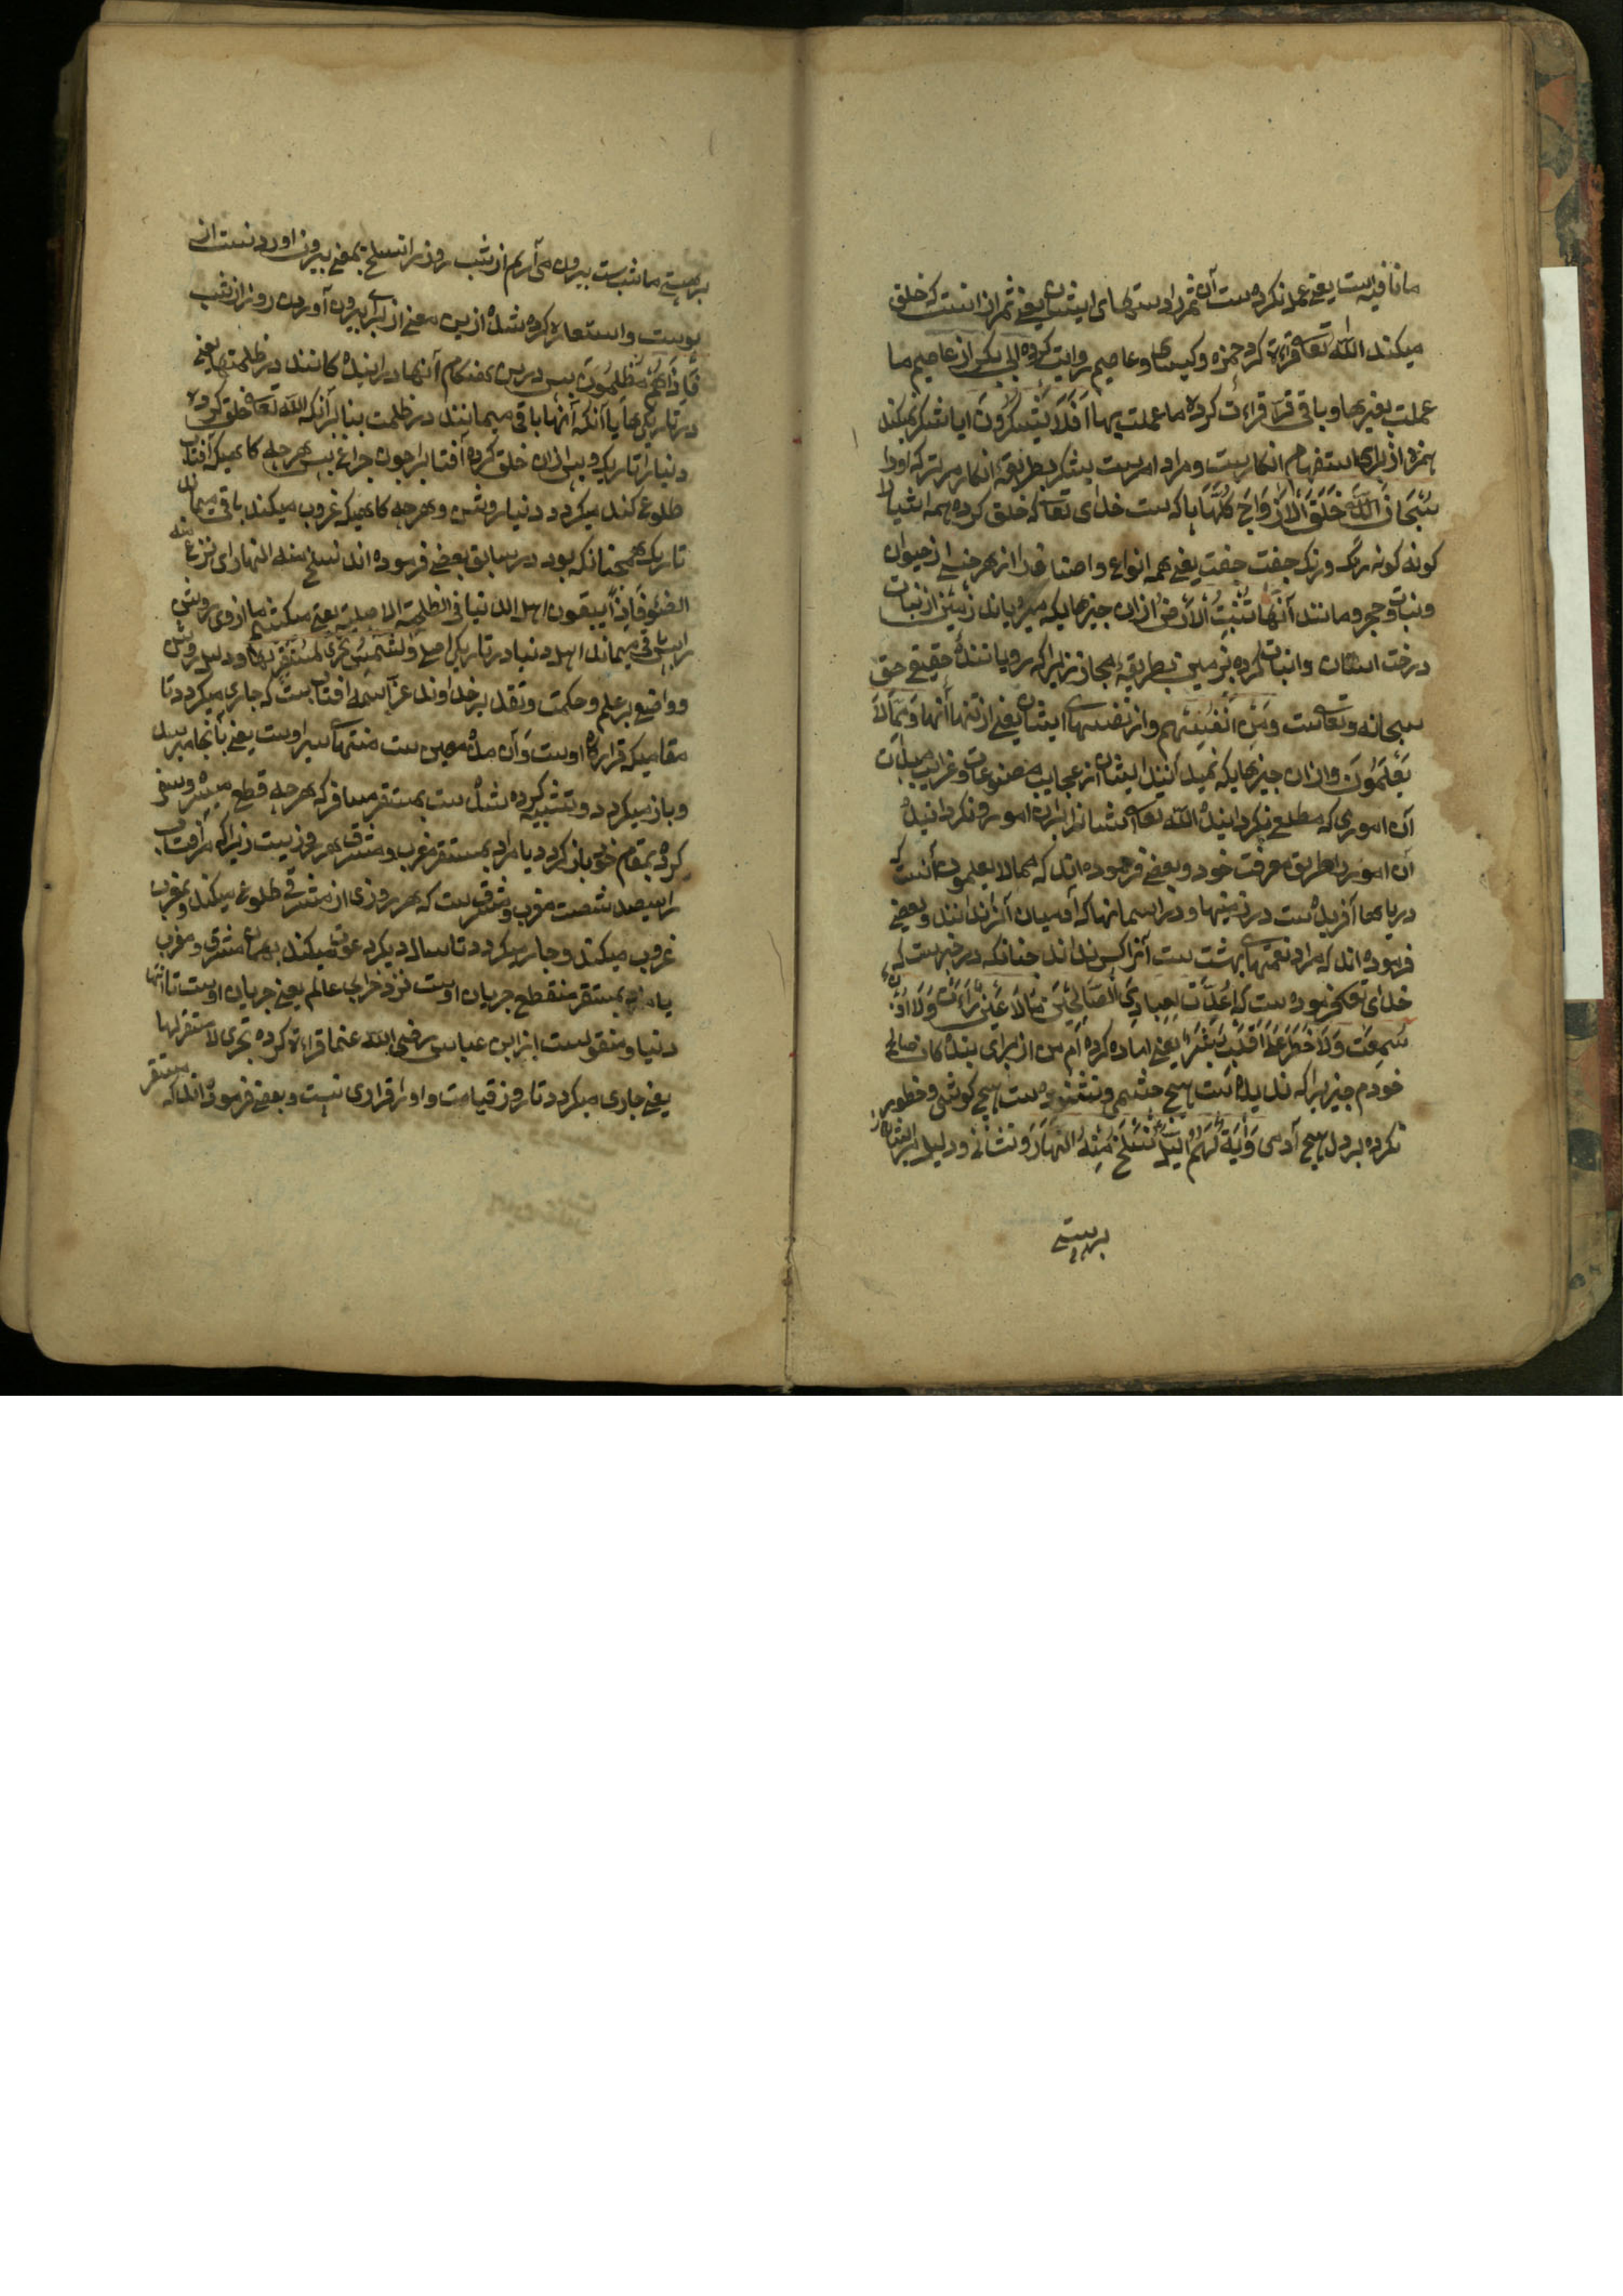 ما نافیه ست یعنی عمل نکرده ست آن ثمر را دستهای ایشان یعنی ثمر از انست که خلق
میکند الله تعالی قراءة کرد حمزه و کسای و عاصم بروایت کرده ابی بکر از عاصم ما
عملت بغیر ها و باقی قرا قراءت کرده ما عملت بها اَفَلَا یَشْکُرُونَ ایا شکر نمیکند
همزه از برای استفهام انکاریست و مراد امر ست بشکر بطریقه انکار مر ترک او را
سُبْحَانَ اللَّهِ خَلَقَ الْاَزْوَاجَ کُلَّهَا پاکست خدای تعالی که خلق کرده همه اشیا را
کونه کونه رنگ و رنگ جفت جفت یعنی همه انواع و اصناف را از هر جنسی از حیوان
و نبات و حجر و مانند آنها مِمَّا تُنْبِتُ الْاَرْضُ ازان چیزهایکه میرویاند زمین از نبات
درخت انسان و انبات کرده بزمین بطریقه مجاز زیرا که رویانندهٔ حقیقی حق
سبحانه و تعالی ست وَمِنْ اَنْفُسِهِمْ و از نفسهای ایشان یعنی از تنها آنها وَمِمَّا لَا
یَعْلَمُونَ و ازان چیزهایکه نمیدانند ایشان از عجایب مصنوعات و غرایب
آن اموری که مطلع نکردانیده الله تعالی ایشانرا بران امور و نکردانیده
آن امور را طریق معرفت خود و بعضی فرموده اند که مما لا یعلمون آنست که
دریاها آفریده ست در زمینها و در اسمانها که آدمیان آنرا ندانند و بعضی
فرموده اند که مراد نعمتهای بهشت ست آنرا کس نداند چنانکه در خبر ست که
خدای تعالی فرموده ست که اَعْدَدْتُ لِعِبَادِیَ الصَّالِحِینَ مَا لَا عَیْنٌ رَاَتْ وَلَا اُذُنٌ
سَمِعَتْ وَلَا خَطَرَ عَلَی قَلْبِ بَشَرٍ یعنی اماده کرده ام من از برای بندهکان صالح
خودم چیزیرا که ندیده ست هیچ چشمی و نشنوده ست هیچ کوشی و خطور
نکرده بر دل هیچ آدمی وَآیَةٌ لَهُمُ اللَّیْلُ نَسْلَخُ مِنْهُ النَّهَارَ و نشانی و دلیل
برهستی
برهستی ما شب ست بیرون می آریم از شب روز را نسلخ بمعنی بیرون اوردنست از
پوست و استعاره کرده شده ازین معنی از برای بیرون آوردن روز از شب
فَاِذَا هُمْ مُظْلِمُونَ پس درین هنکام آنها در ایندهکانند در ظلمتها یعنی
در تاریکیها یا آنکه آنها باقی میمانند در ظلمت بنا بر آنکه الله تعالی خلق کرده
دنیا را تاریک و پس ازان خلق کرده آفتاب را چون چراغ پس هر چه کاهیکه آفتاب
طلوع کند میکردد دنیا روشن و هر چه کاهیکه غروب میکند باقی میماند
تاریک همچنانکه بود در سابق بعضی فرموده اند نسلخ منه النهار ای ننزع منه
الضوء فاذا یبقون اهل الدنیا فی الظلمة الاصلیة یعنی میکشیم ما از وی روشنی
را پس باقی میماند اهل دنیا در تاریکی اصلی وَالشَّمْسُ تَجْرِی لِمُسْتَقَرٍّ لَهَا و دلیل روشن
و واضح بر علم و حکمت و تقدیر خداوند عز اسمه افتاب ست که جاری میکردد تا
مقامیکه قرارکاه اوست و آن حد معین ست منتهای سیر اوست یعنی بآنجا میرسد
و باز میکردد و تشبیه کرده شده ست بمستقر مسافر که هر چه قطع مسیر و سفر
کرده بمقام خود باز کردد یا مراد بمستقر مغرب و مشرق هر روز یست زیرا که مر آفتاب
را سیصد شصت مغرب و مشرق ست که هر روزی از مشرقی طلوع میکند و بمغرب
غروب میکند و جاری میکردد تا سال دیکر عود میکند بهمان مشرق و مغرب
یا مراد بمستقر منقطع جریان اوست نزد خرابی عالم یعنی جریان اوست تا انتها
دنیا و منقولست از ابن عباس رضی الله عنهما قراءة کرده تجری لا مستقر لها
یعنی جاری میکردد تا روز قیامت و او را قراری نیست و بعضی فرموده اند که مستقر